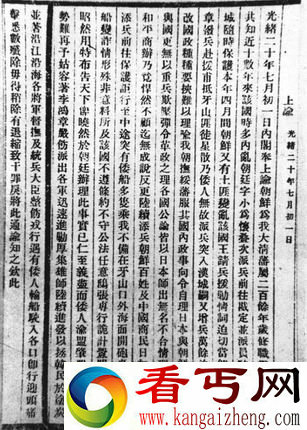 上諭　光緒二十年七月初一日
光緒二十年七月初一日內閣奉上諭朝鮮為我大清藩屬二百餘年歲修職
共知近十數年來該國時多內亂朝廷字小為懷疊次派兵前往戡定並派員
城隨時保護本年四月間朝鮮又有土匪變亂該國王請兵援勦情詞迫切當
章撥兵赴援甫抵牙山匪徒星散乃倭人無故派兵突入漢城嗣又增兵萬餘
改國政種種要挾難以理喻我朝撫綏藩服其國內政事向令自理日本與朝
與國更無以重兵欺壓強令革政之理各國公論皆以日本師出無名不合情理
和平商辦乃竟悍然不顧迄無成說反更陸續添兵朝鮮百姓及中國商民日
添兵前往保護詎行至中途突有倭船多隻乘我不備在牙山口外海面開砲
船變詐情形殊非意料所及該國不遵條約不守公法任意鴟張專行詭計釁
昭然用特布告天下俾曉然於朝廷辦理此事實已仁至義盡而倭人渝盟肇
勢難再予姑容著李鴻章嚴飭派出各軍迅速進勦厚集雄師陸續進發以拯韓民於塗炭
並著沿江沿海各將軍督撫及統兵大臣整飭戎行遇有倭人輪船駛入各口即行迎頭痛
擊悉數殲除毋得稍有退縮致干罪戾將此通諭知之欽此
看丐网
www.kangaizheng.com